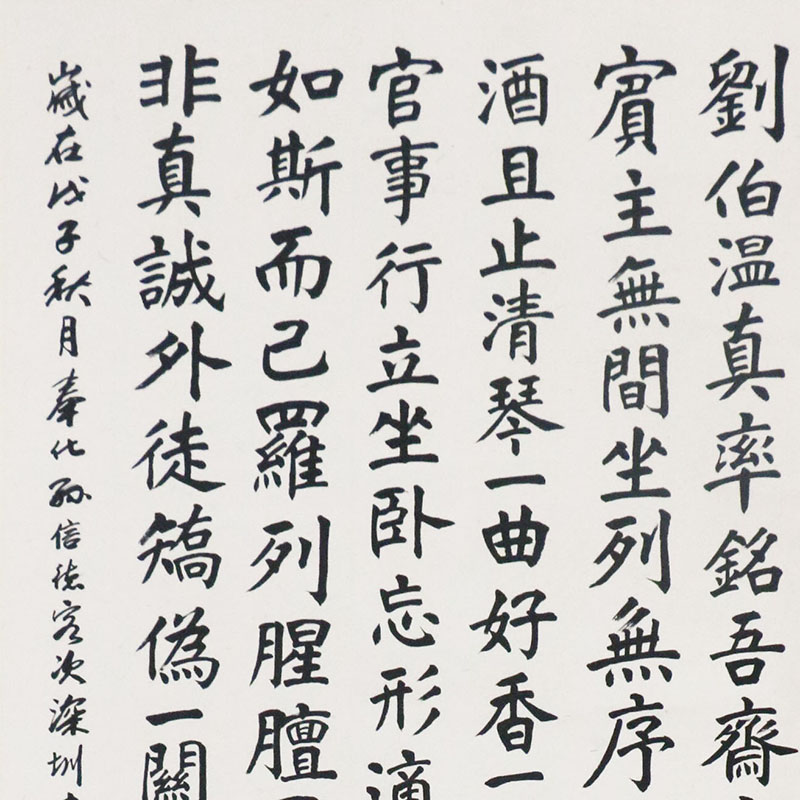 劉伯温真率銘吾齋
賓主無間坐列無序
酒且止清琴一曲好香一
官事行立坐卧忘形適
如斯而已羅列腥膻
非真誠外徒矯偽一關
歲在戊子秋月奉化孫信德客次深圳